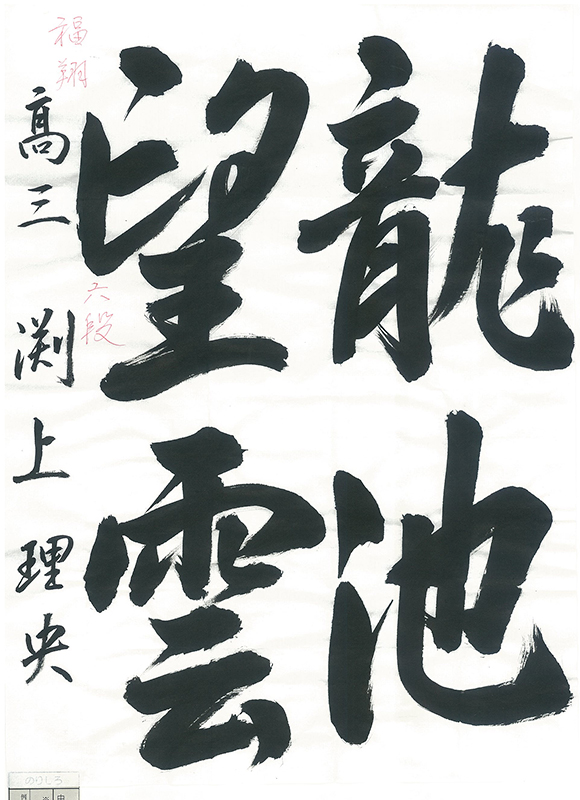 龍池
望雲
高三 渕上理央
福翔
六段
のりしろ